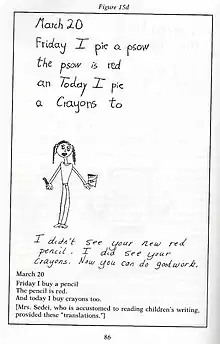 Figure 15d
March 20
Friday I pie a psow
the psow is red
an Today I pie
a Crayons to
I didn't see your new red
pencil. I did see your
crayons. Now you can do good work.
March 20
Friday I buy a pencil
The pencil is red.
And today I buy crayons too.
[Mrs. Sedei, who is accustomed to reading children's writing,
provided these "translations."]
86